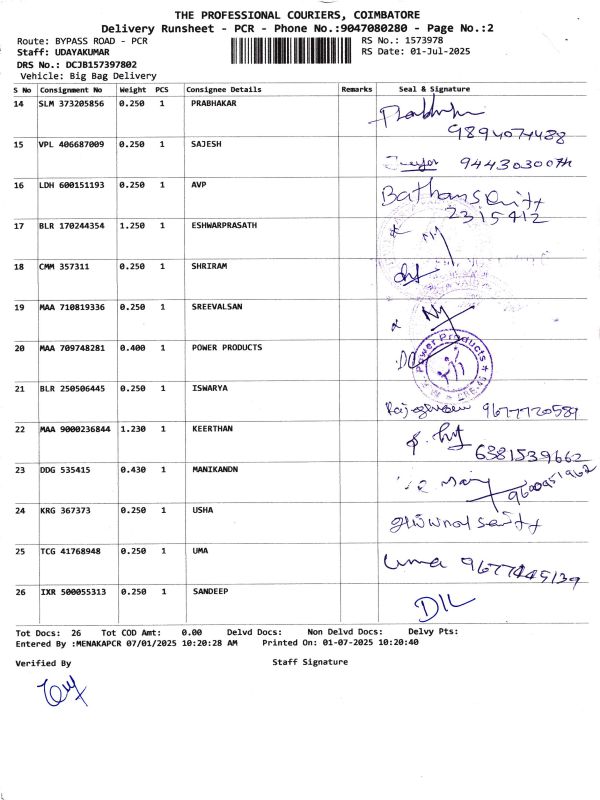 THE PROFESSIONAL COURIERS, COIMBATORE
Delivery Runsheet - PCR - Phone No.:9047080280 - Page No.:2
Route: BYPASS ROAD - PCR RS No.: 1573978
Staff: UDAYAKUMAR RS Date: 01-Jul-2025
DRS No.: DCJB157397802
Vehicle: Big Bag Delivery
S No Consignment No Weight PCS Consignee Details Remarks Seal & Signature
14 SLM 373205856 0.250 1 PRABHAKAR Prabhu
9894074488
15 VPL 406687009 0.250 1 SAJESH 9443030074
16 LDH 600151193 0.250 1 AVP
2315412
17 BLR 170244354 1.250 1 ESHWARPRASATH
18 CMM 357311 0.250 1 SHRIRAM
19 MAA 710819336 0.250 1 SREEVALSAN
20 MAA 709748281 0.400 1 POWER PRODUCTS Power Products
21 BLR 250506445 0.250 1 ISWARYA 9677720589
22 MAA 9000236844 1.230 1 KEERTHAN
6381539662
23 DDG 535415 0.430 1 MANIKANDN 9600951962
24 KRG 367373 0.250 1 USHA
25 TCG 41768948 0.250 1 UMA Uma 9677445139
26 IXR 500055313 0.250 1 SANDEEP
Tot Docs: 26 Tot COD Amt: 0.00 Delvd Docs: Non Delvd Docs: Delvy Pts:
Entered By :MENAKAPCR 07/01/2025 10:20:28 AM Printed On: 01-07-2025 10:20:40
Verified By Staff Signature